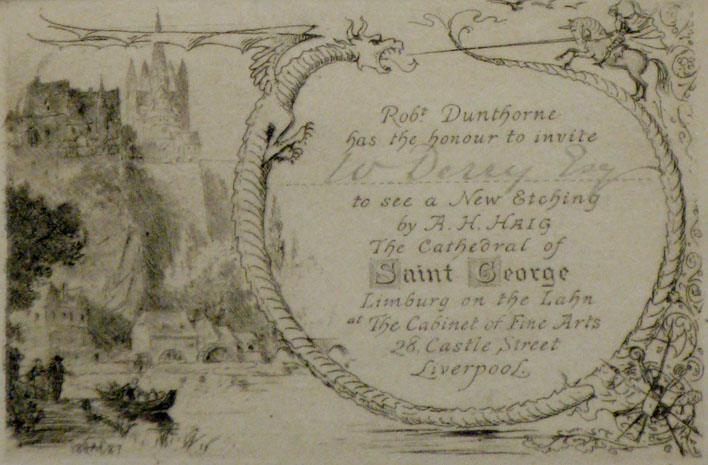 Robt. Dunthorne
has the honour to invite
W Derry Esq
to see a New Etching
by A. H. HAIG
The Cathedral of
Saint George
Limburg on the Lahn
at The Cabinet of Fine Arts
28, Castle Street
Liverpool.